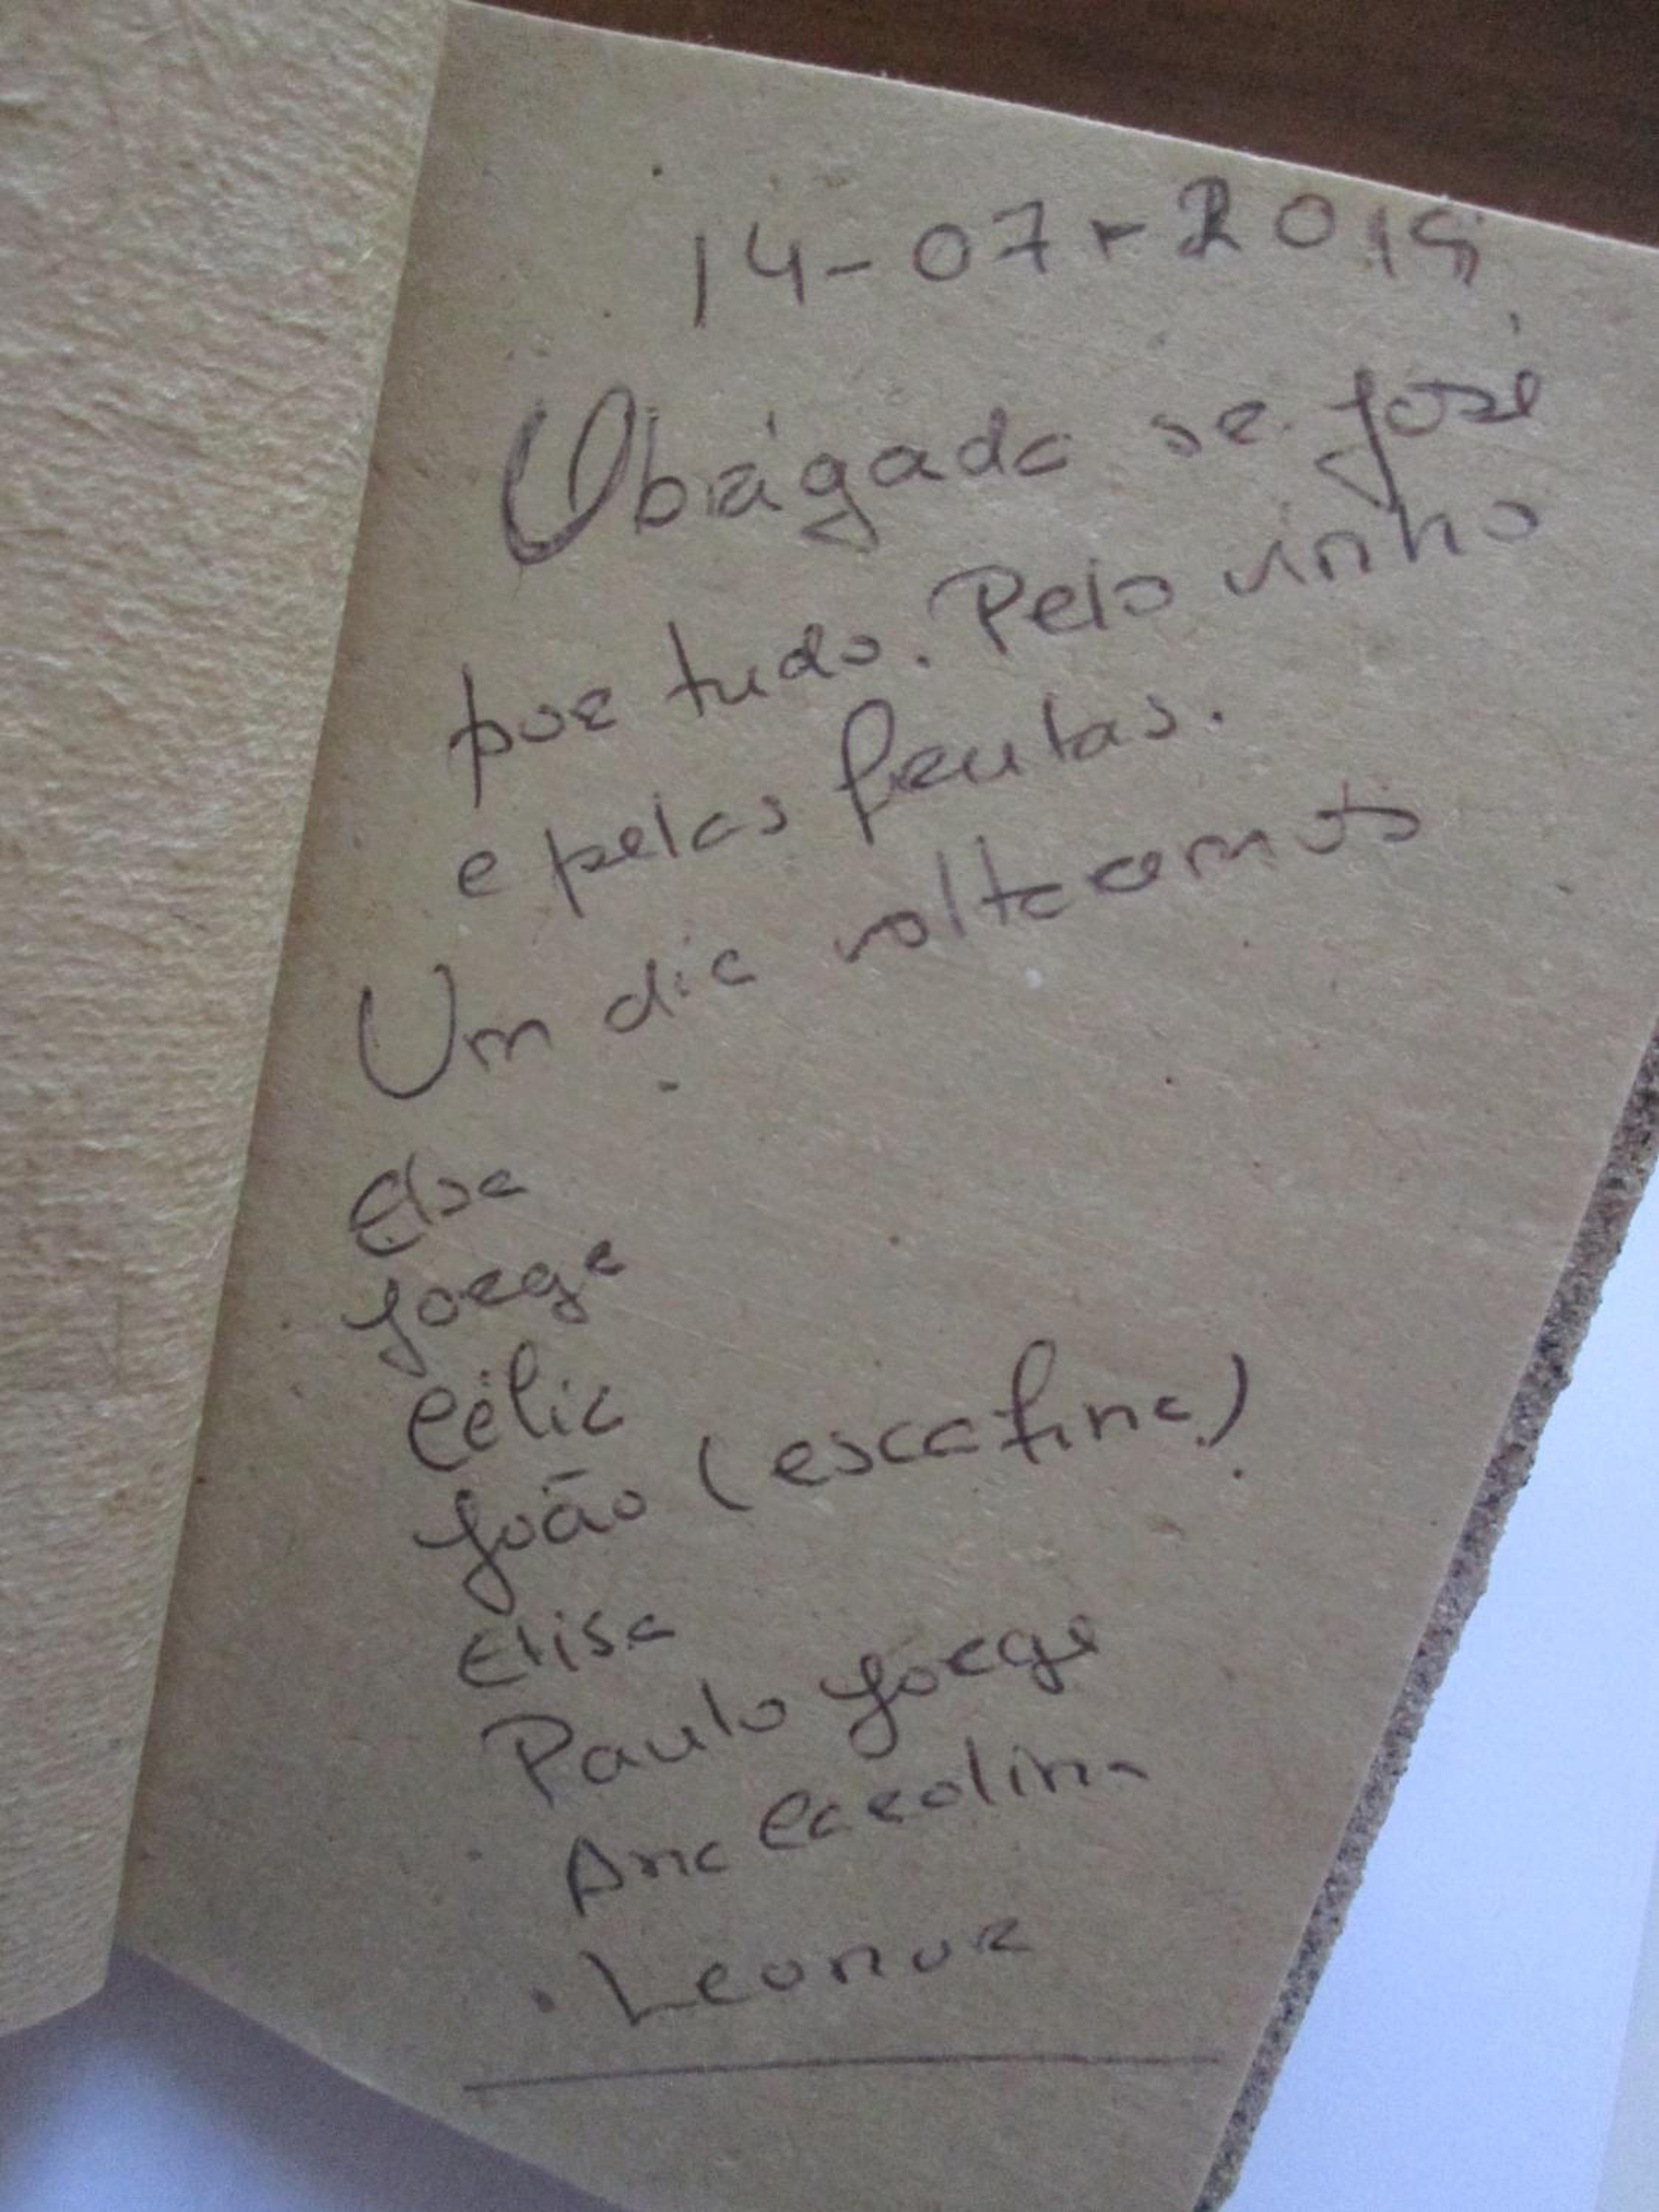 14-07-2019
Obrigada sr. José
por tudo. Pelo vinho
e pelas frutas.
Um dia voltamos
Elsa
Jorge
Célia
João (escafina)
Elisa
Paulo Jorge
Ana Carolina
Leonor